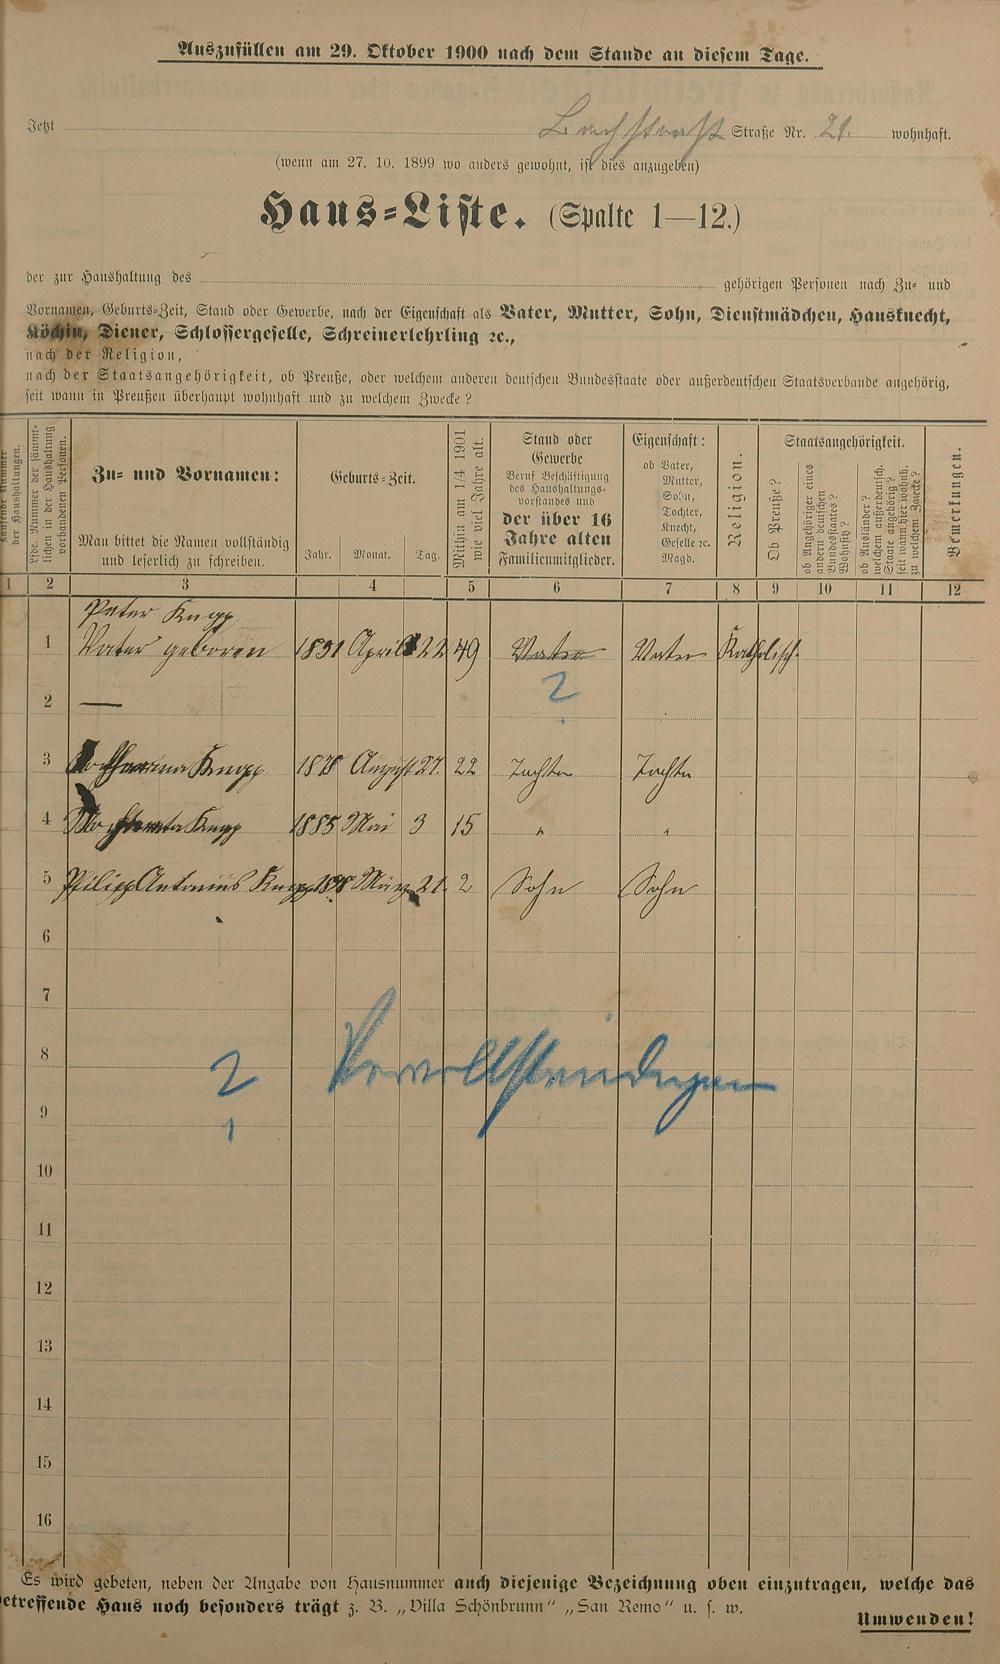 Auszufüllen am 29. Oktober 1900 nach dem Stande an diesem Tage.
Jetzt Bachstraße Straße Nr. 21. wohnhaft.
(wenn am 27. 10. 1899 wo anders gewohnt, ist dies anzugeben)
Haus-Liste. (Spalte 1—12.)
der zur Haushaltung des gehörigen Personen nach Zu- und
Vornamen, Geburts-Zeit, Stand oder Gewerbe, nach der Eigenschaft als Vater, Mutter, Sohn, Dienstmädchen, Hausknecht,
Köchin, Diener, Schlossergeselle, Schreinerlehrling ꝛc.,
nach der Religion,
nach der Staatsangehörigkeit, ob Preuße, oder welchem anderen deutschen Bundesstaate oder außerdeutschen Staatsverbande angehörig,
seit wann in Preußen überhaupt wohnhaft und zu welchem Zwecke?
Laufende Nummer der Haushaltungen.
Lfde. Nummer der sämmtlichen in der Haushaltung vorhandenen Personen.
Zu- und Vornamen:
Man bittet die Namen vollständig
und leserlich zu schreiben.
Geburts-Zeit.
Jahr. Monat. Tag.
Mithin am 1/4 1901 wie viel Jahre alt.
Stand oder
Gewerbe
Beruf Beschäftigung
des Haushaltungs-
vorstandes und
der über 16
Jahre alten
Familienmitglieder.
Eigenschaft:
ob Vater,
Mutter,
Sohn,
Tochter,
Knecht,
Geselle ꝛc.
Magd.
Religion.
Staatsangehörigkeit.
Ob Preuße?
ob Angehöriger eines andern deutschen Bundesstaates? Wohnsitz?
ob Ausländer? welchem außerdeutsch. Staate angehörig? seit wann hier wohnh. zu welchem Zwecke?
Bemerkungen.
1 2 3 4 5 6 7 8 9 10 11 12
Peter Knopp
1 Vater geboren 1851 April 22 49 Vater Vater Katholisch.
2 — 2
3 Katharina Knopp 1878 August 27. 22 Tochter Tochter
4 Knopp 1885 Mai 3 15 " "
5 Philipp Antonius Knopp 1898 März 21. 2 Sohn Sohn
6
7
8 2 Vervollständigen
9 1
10
11
12
13
14
15
16
Es wird gebeten, neben der Angabe von Hausnummer auch diejenige Bezeichnung oben einzutragen, welche das
betreffende Haus noch besonders trägt z. B. „Villa Schönbrunn“ „San Remo“ u. s. w.
Umwenden!